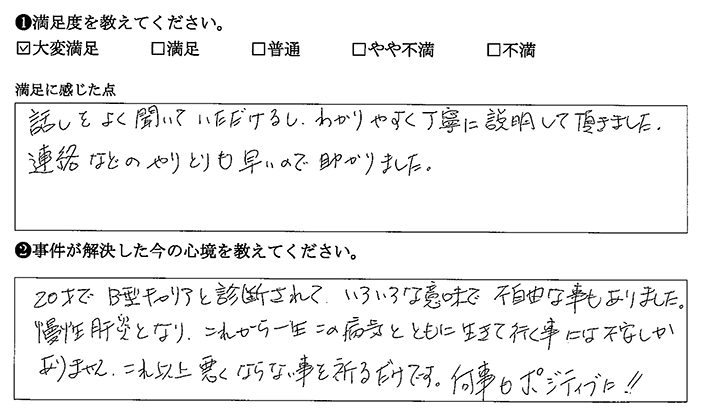 ❶満足度を教えてください。
☑大変満足 □満足 □普通 □やや不満 □不満
満足に感じた点
話しをよく聞いていただけるし、わかりやすく丁寧に説明して頂きました。
連絡などのやりとりも早いので助かりました。
❷事件が解決した今の心境を教えてください。
20才でB型キャリアと診断されて、いろいろな意味で不自由な事もありました。
慢性肝炎となり、これから一生この病気とともに生きて行く事には不安しか
ありません。これ以上悪くならない事を祈るだけです。何事もポジティブに!!